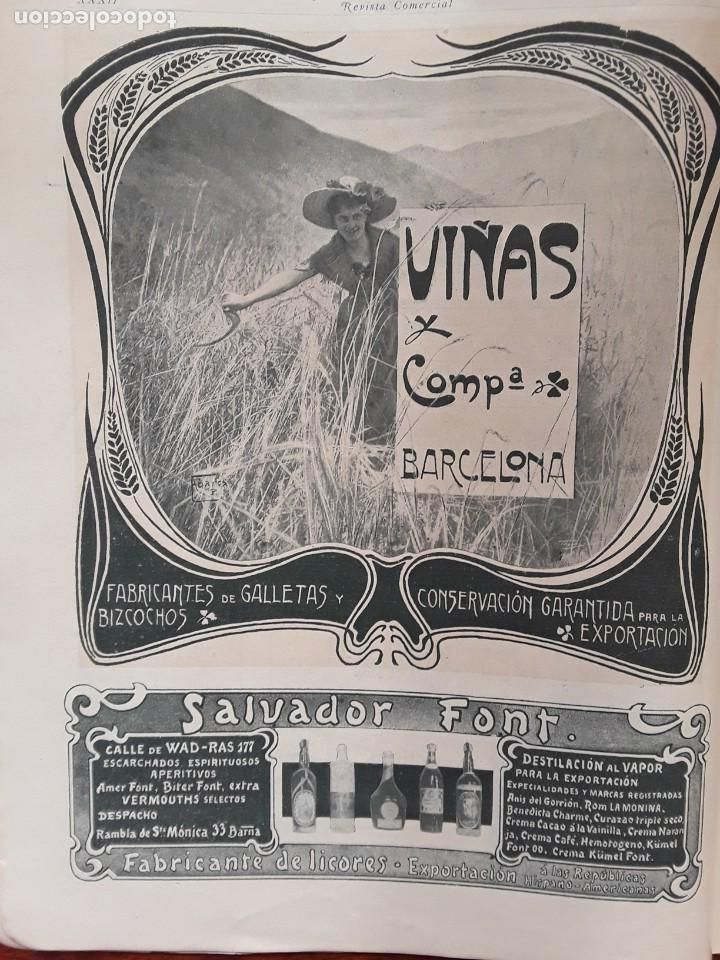 XXXII
Revista Comercial
todocoleccion
VIÑAS
y
Compª
BARCELONA
FABRICANTES DE GALLETAS Y
BIZCOCHOS
CONSERVACIÓN GARANTIDA PARA LA
EXPORTACIÓN
Salvador Font.
CALLE DE WAD-RAS 177
ESCARCHADOS ESPIRITUOSOS
APERITIVOS
Amer Font, Biter Font, extra
VERMOUTHS SELECTOS
DESPACHO
Rambla de Sta Mónica 33 Barna
DESTILACIÓN AL VAPOR
PARA LA EXPORTACIÓN
ESPECIALIDADES Y MARCAS REGISTRADAS
Anis del Gorrión, Rom LA MONINA,
Benedicta Charme, Curazao triple seco,
Crema Cacao á la Vainilla, Crema Naran
ja, Crema Café, Hemotogeno, Kümel
Font OO. Crema Kümel Font.
Fabricante de licores - Exportación á las Repúblicas
Hispano-Americanas
todocoleccion.net